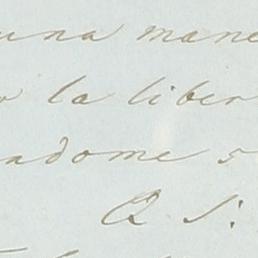 una mane
la liber
adome s
Q S: